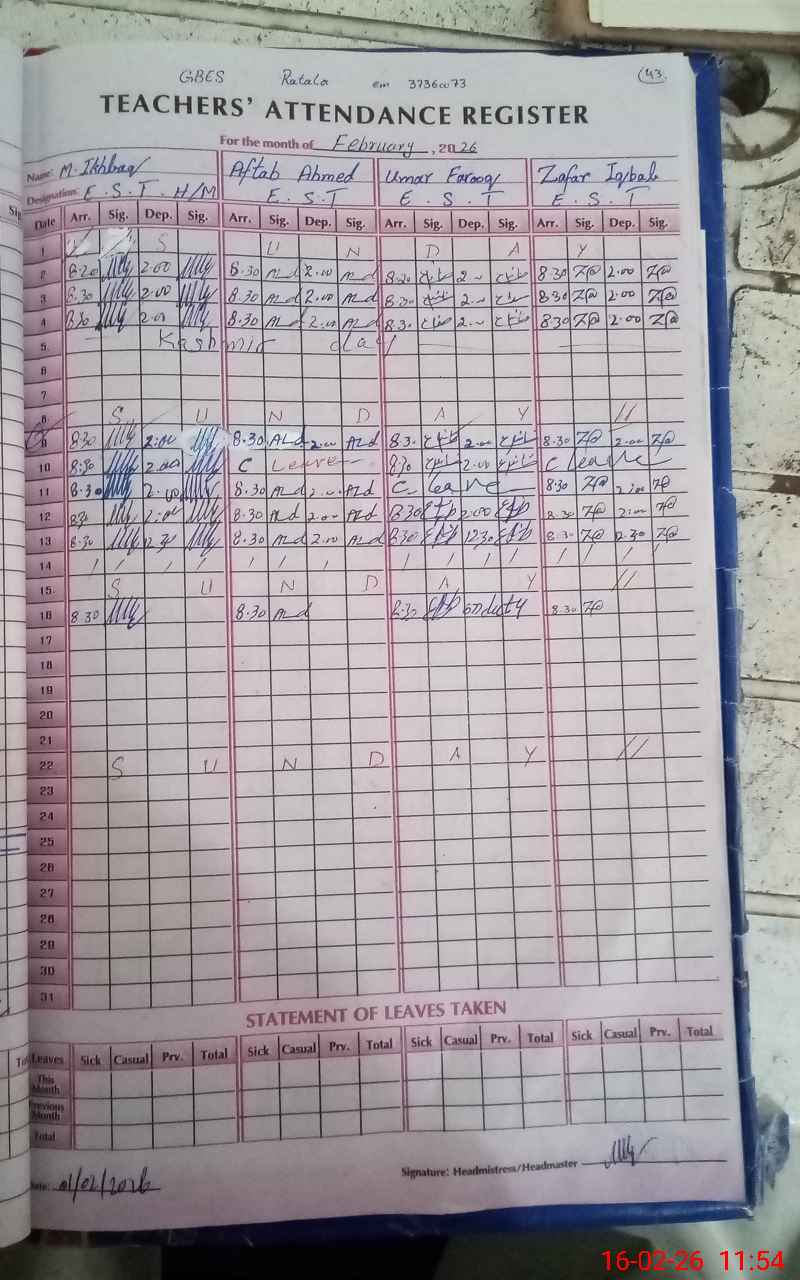 GBES Ratala em 3736073 43
TEACHERS' ATTENDANCE REGISTER
For the month of February, 2026
Name: M. Ikhlaq Aftab Ahmed Umar Farooq Zafar Iqbal
Designation: E.S.T H/M E.S.T E.S.T E.S.T
Date Arr. Sig. Dep. Sig. Arr. Sig. Dep. Sig. Arr. Sig. Dep. Sig. Arr. Sig. Dep. Sig.
1 S U N D A Y
2 8.20 2.00 8.30 ALd 2.00 ALd 8.30 2.00 8.30 Z@ 2.00 Z@
3 8.30 2.00 8.30 ALd 2.00 ALd 8.30 2.00 8.30 Z@ 2.00 Z@
4 8.30 2.00 8.30 ALd 2.00 ALd 8.30 2.00 8.30 Z@ 2.00 Z@
5. Kashmir day
6
7
8 S U N D A Y //
9 8.30 2.00 8.30 ALd 2.00 ALd 8.30 2.00 8.30 Z@ 2.00 Z@
10 8.30 2.00 C Leave 8.30 2.00 C leave
11 8.30 2.00 8.30 ALd 2.00 ALd C. leave 8.30 Z@ 2.00 Z@
12 8.30 2.00 8.30 ALd 2.00 ALd 8.30 2.00 8.30 Z@ 2.00 Z@
13 8.30 12.30 8.30 ALd 2.00 ALd 8.30 12.30 8.30 Z@ 12.30 Z@
14 / / / / / / / / / / / / / / / /
15. S U N D A Y //
16 8.30 8.30 ALd 8.30 on duty 8.30 Z@
17
18
19
20
21
22 S U N D A Y //
23
24
25
26
27
28
29
30
31
STATEMENT OF LEAVES TAKEN
Leaves Sick Casual Prv. Total Sick Casual Prv. Total Sick Casual Prv. Total Sick Casual Prv. Total
This Month
Previous Month
Total
Date: 01/02/2026 Signature: Headmistress/Headmaster
16-02-26 11:54